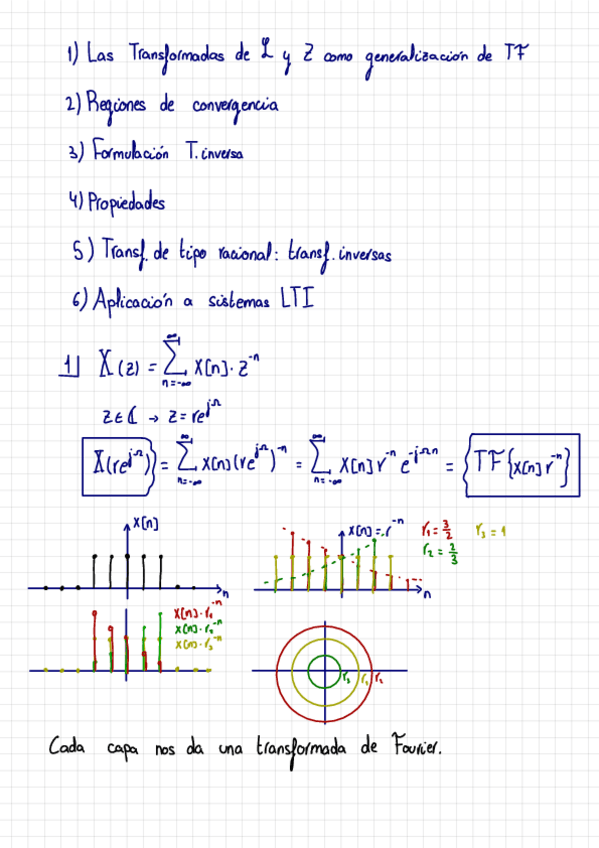 1) Las Transformadas de ℒ y Z como generalización de TF
2) Regiones de convergencia
3) Formulación T. inversa
4) Propiedades
5) Transf. de tipo racional: transf. inversas
6) Aplicación a sistemas LTI
1) X(z) = ∑_{n=-∞}^{∞} x[n]·z^{-n}
z∈ℂ → z = re^{jΩ}
X(re^{jΩ}) = ∑_{n=-∞}^{∞} x[n](re^{jΩ})^{-n} = ∑_{n=-∞}^{∞} x[n] r^{-n} e^{-jΩn} = TF{x[n] r^{-n}}
x[n]
n
x[n] = r^{-n}
r₁ = 3/2
r₃ = 1
r₂ = 2/3
n
x[n]·r₁^{-n}
x[n]·r₂^{-n}
x[n]·r₃^{-n}
Cada capa nos da una transformada de Fourier.